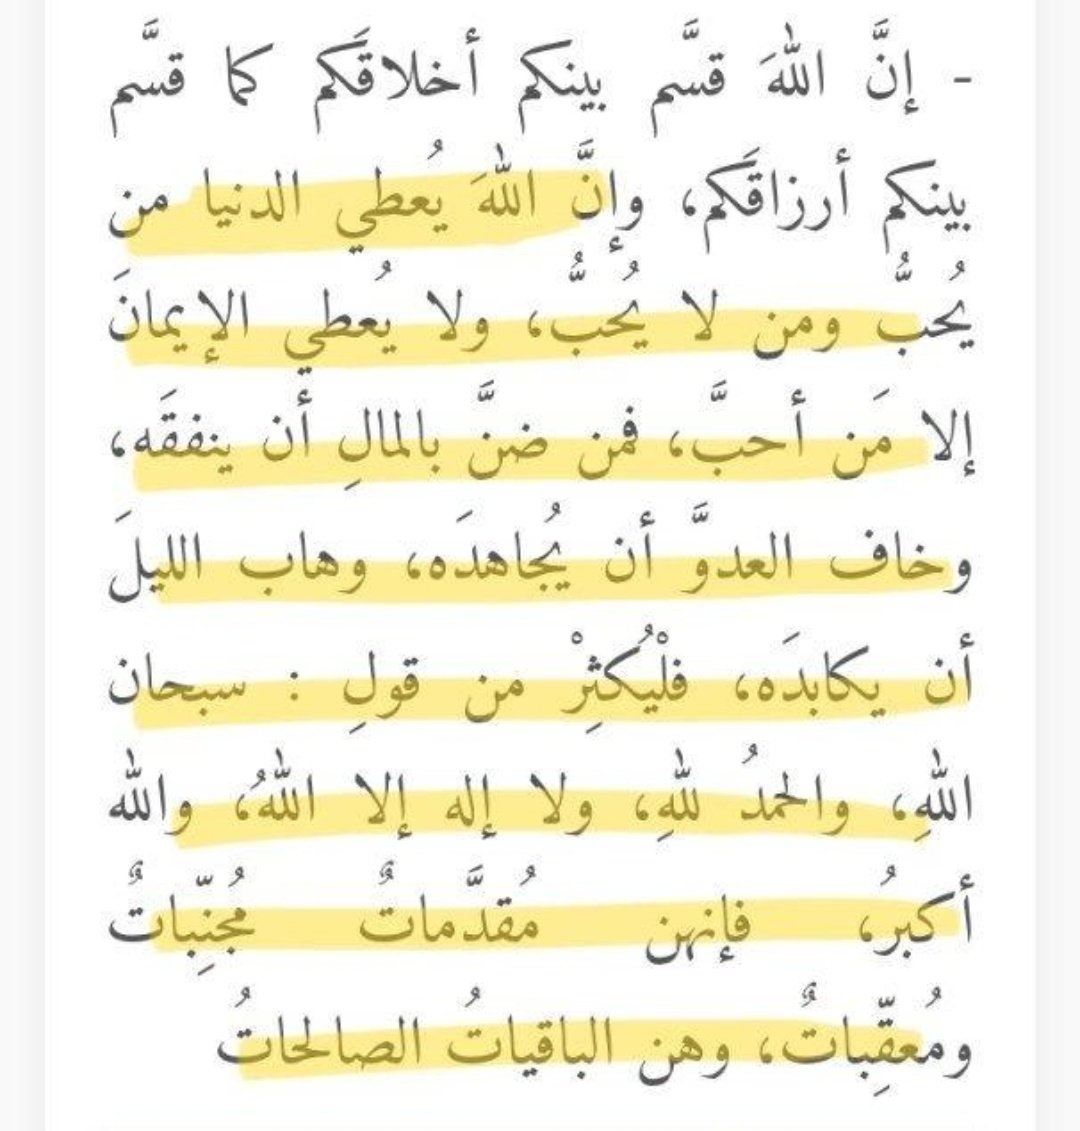 - إنَّ اللهَ قسَّم بينكم أخلاقَكم كما قسَّم
بينكم أرزاقَكم، وإنَّ اللهَ يُعطي الدنيا من
يُحبُّ ومن لا يُحبُّ، ولا يُعطي الإيمانَ
إلا مَن أحبَّ، فمن ضنَّ بالمالِ أن ينفقَه،
وخاف العدوَّ أن يُجاهدَه، وهاب الليلَ
أن يكابدَه، فلْيُكثِرْ من قولِ : سبحان
اللهِ، والحمدُ للهِ، ولا إله إلا اللهُ، والله
أكبرُ، فإنهن مُقدَّماتٌ مُجنِّباتٌ
ومُعقِّباتٌ، وهن الباقياتُ الصالحاتُ